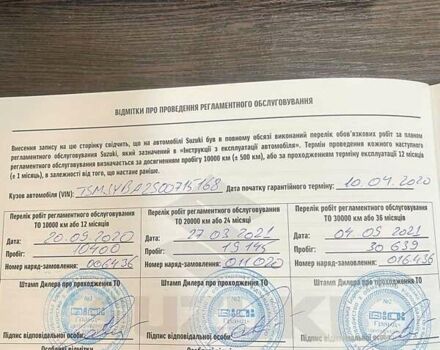 ВІДМІТКИ ПРО ПРОВЕДЕННЯ РЕГЛАМЕНТНОГО ОБСЛУГОВУВАННЯ
Внесення запису на цю сторінку свідчить, що на автомобілі Suzuki був в повному обсязі виконаний перелік обов'язкових робіт за планом
регламентного обслуговування Suzuki, який зазначений в «Інструкції з експлуатації автомобіля». Термін проведення кожного наступного
регламентного обслуговування визначається за досягненням пробігу 10000 км (± 500 км), або за проходженням терміну експлуатації 12 місяців
(± 1 місяць), в залежності від того, що настане раніше.
Кузов автомобіля (VIN): TSMLYBA2S00715168 Дата початку гарантійного терміну: 10.04.2020
Перелік робіт регламентного обслуговування ТО 10000 км або 12 місяців
Дата: 20.09.2020
Пробіг: 10400
Номер наряд-замовлення: 006436
Перелік робіт регламентного обслуговування ТО 20000 км або 24 місяці
Дата: 27.03.2021
Пробіг: 19145
Номер наряд-замовлення: 011020
Перелік робіт регламентного обслуговування ТО 30000 км або 36 місяців
Дата: 04.09.2021
Пробіг: 30639
Номер наряд-замовлення: 016436
Штамп Дилера про проходження ТО
Штамп Дилера про проходження ТО
Штамп Дилера про проходження ТО
Підпис відповідальної особи:
Підпис відповідальної особи:
Підпис відповідальної особи: